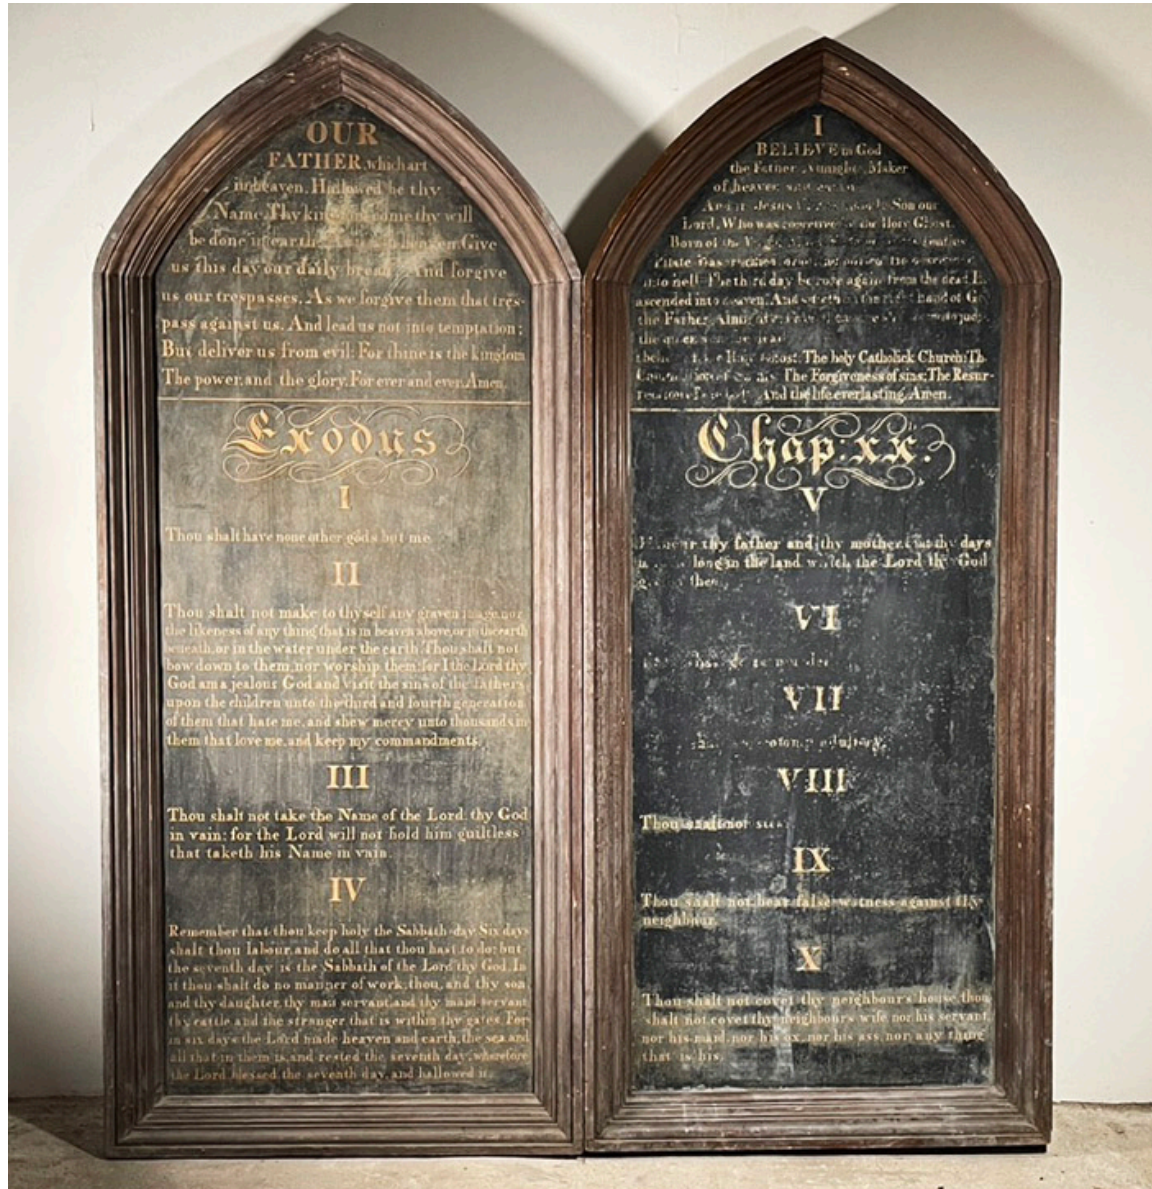 OUR
FATHER, which art
in heaven, Hallowed be thy
Name. Thy kingdom come thy will
be done in earth, Give
us this day our daily bread And forgive
us our trespasses, As we forgive them that tres-
pass against us. And lead us not into temptation;
But deliver us from evil: For thine is the kingdom
The power, and the glory, For ever and ever, Amen.
Exodus
I
Thou shalt have none other gods but me
II
Thou shalt not make to thyself any graven image, nor
the likeness of any thing that is in heaven above, or in the earth
beneath, or in the water under the earth. Thou shalt not
bow down to them, nor worship them: for I the Lord thy
God am a jealous God and visit the sins of the fathers
upon the children unto the third and fourth generation
of them that hate me, and shew mercy unto thousands in
them that love me, and keep my commandments.
III
Thou shalt not take the Name of the Lord, thy God
in vain: for the Lord will not hold him guiltless
that taketh his Name in vain.
IV
Remember that thou keep holy the Sabbath-day Six days
shalt thou labour, and do all that thou hast to do: but
the seventh day is the Sabbath of the Lord thy God. In
it thou shalt do no manner of work, thou, and thy son
and thy daughter, thy man servant, and thy maid servant
thy cattle and the stranger that is within thy gates. For
in six days the Lord made heaven and earth, the sea, and
all that in them is, and rested the seventh day, wherefore
the Lord blessed the seventh day, and hallowed it.
I
BELIEVE in God
the Father Maker
of heaven
Jesus Son our
Lord, Who was the Holy Ghost,
Born of the
Pilate was
into hell The third day he rose again from the dead
ascended into heaven, And hand of
the Father
the
The holy Catholick Church: Th
The Forgiveness of sins: The Resur-
And the life everlasting. Amen.
Chap: xx.
V
thy father and thy mother, thy days
long in the land which the Lord thy God
thee
VI
VII
adultery.
VIII
Thou shalt not
IX
Thou shalt not bear false witness against thy
neighbour.
X
Thou shalt not covet thy neighbour's house, thou
shalt not covet thy neighbour's wife, nor his servant,
nor his maid, nor his ox, nor his ass, nor any thing
that is his.